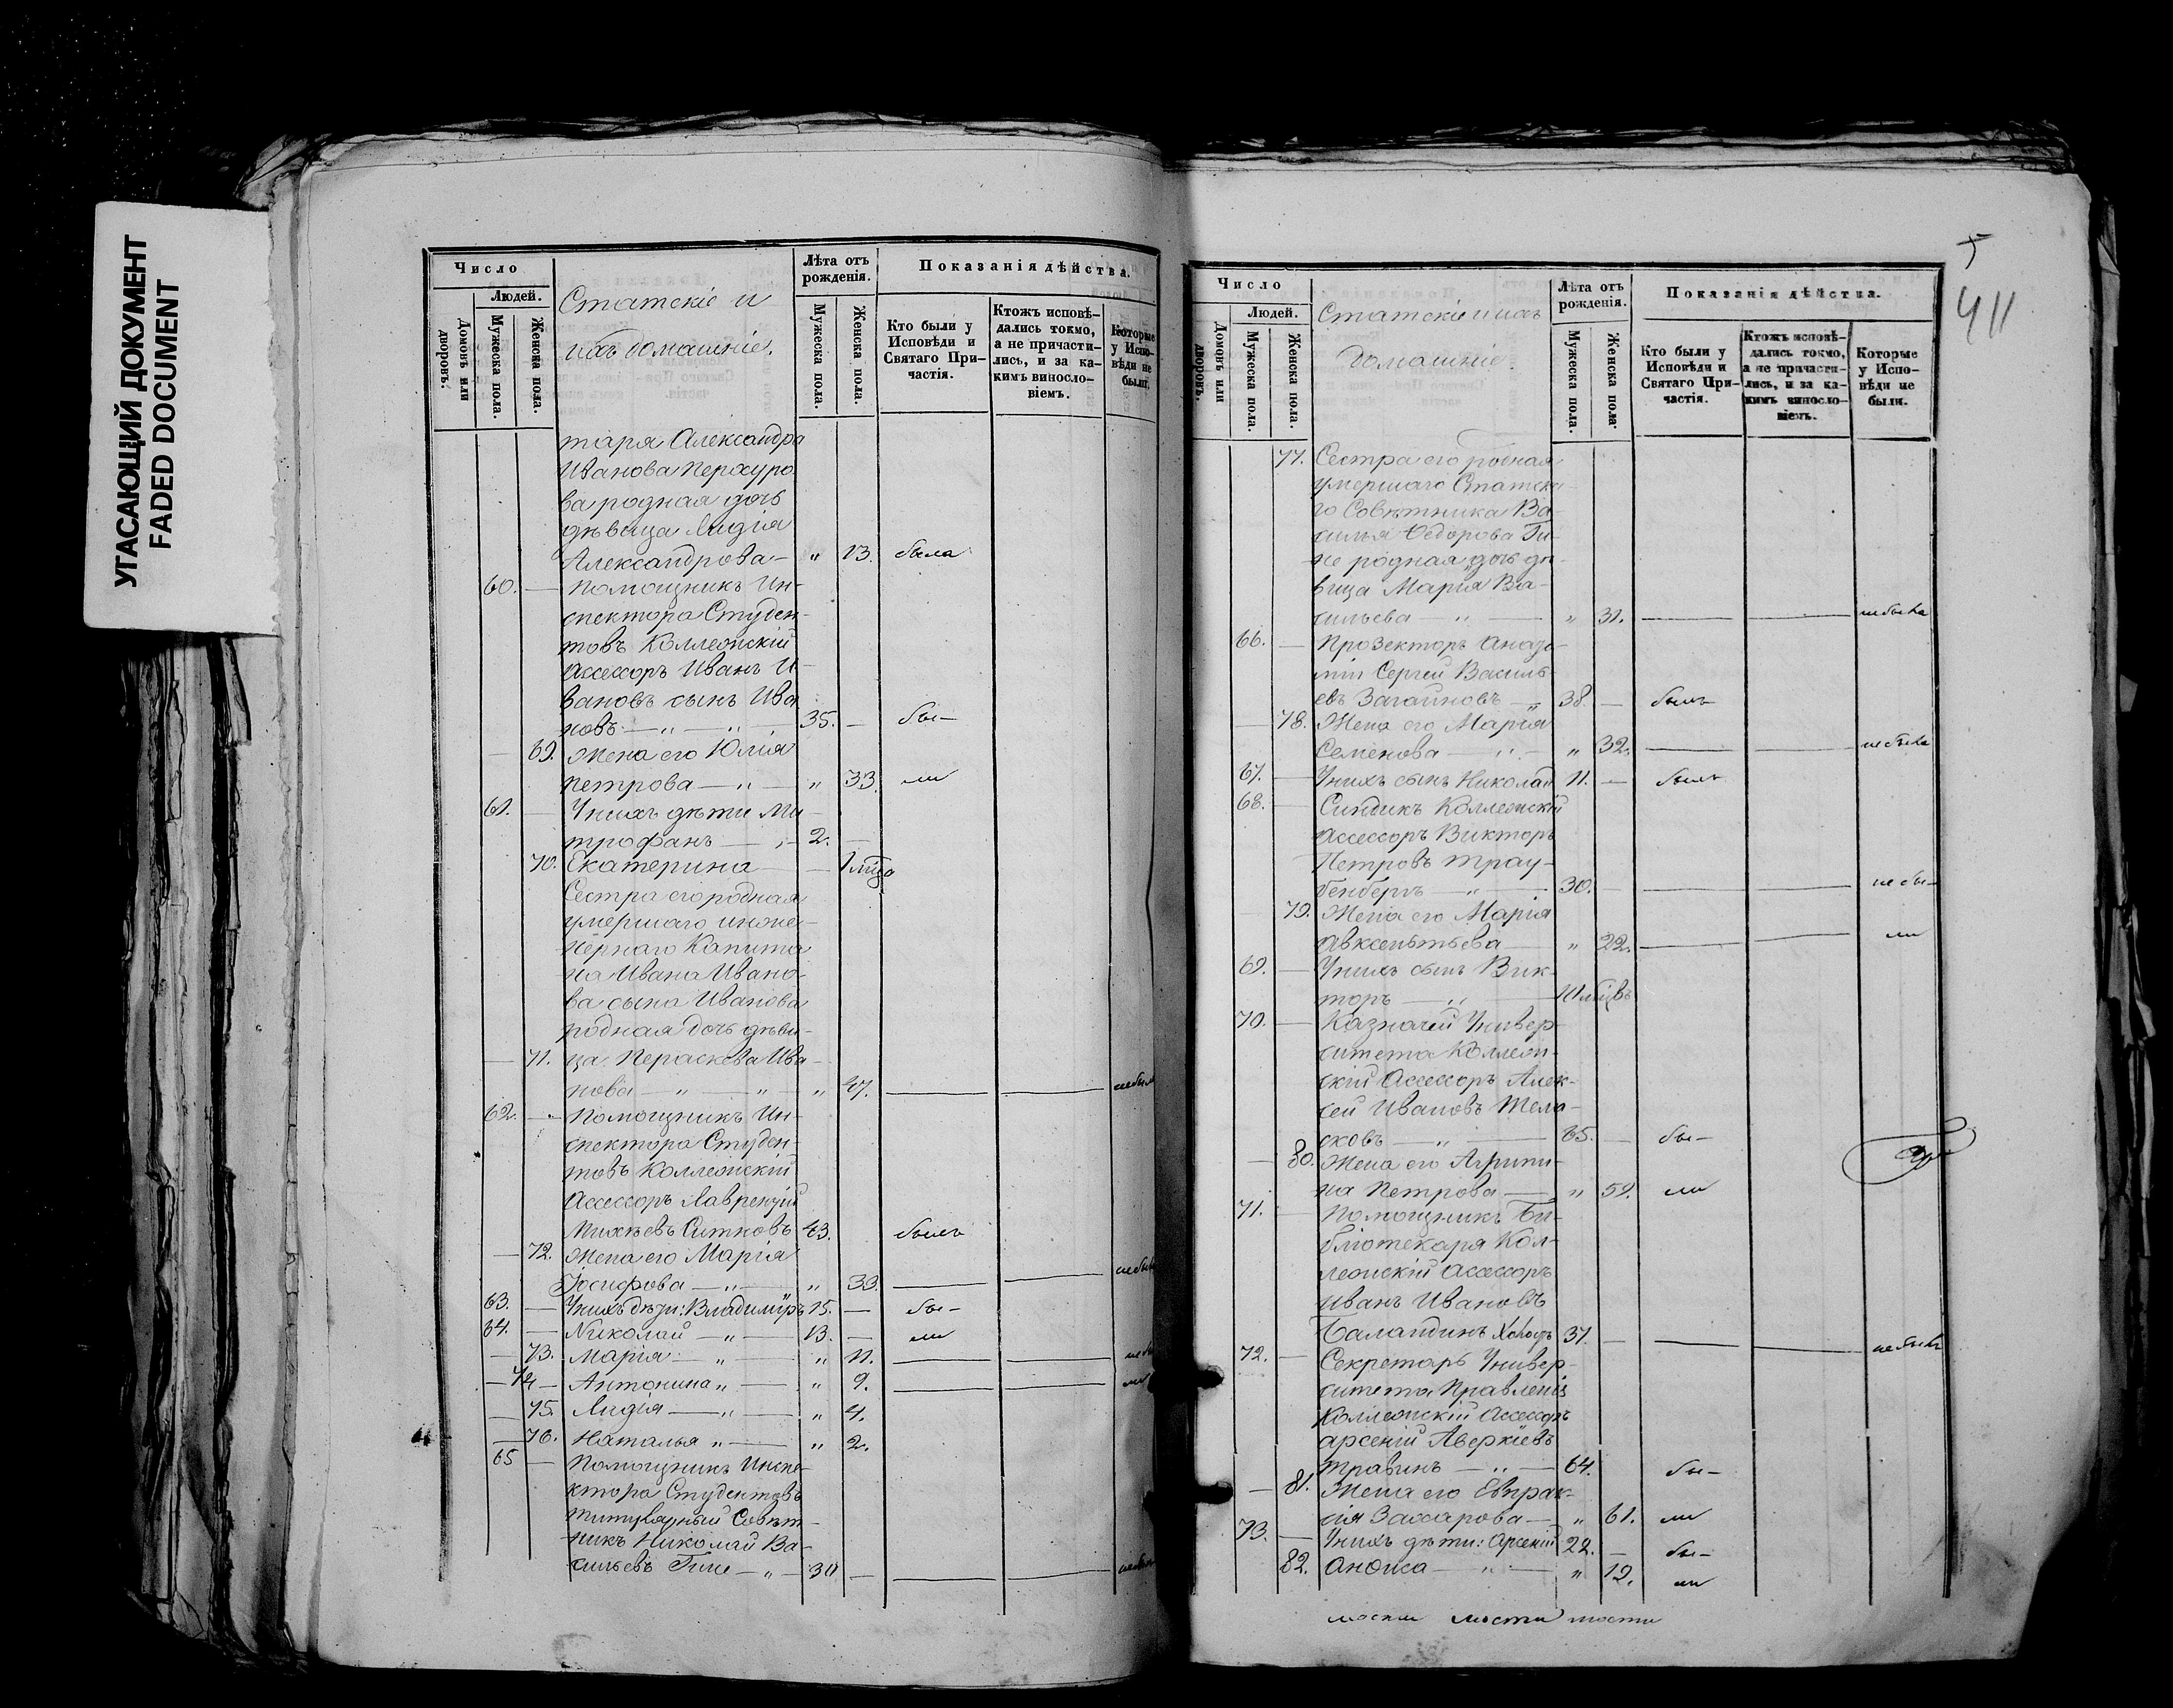 УГАСАЮЩИЙ ДОКУМЕНТ
FADED DOCUMENT
Число
Людей.
Домовъ или дворовъ.
Мужеска пола.
Женска пола.
Статскіе и
ихъ домашніе.
Лѣта отъ
рожденія.
Мужеска пола.
Женска пола.
Показанія дѣйства.
Кто были у
Исповѣди и
Святаго При-
частія.
Ктожъ исповѣ-
дались токмо,
а не причасти-
лись, и за ка-
кимъ винсло-
віемъ.
Которые
у Испо-
вѣди не
были.
таря Александра
Иванова Перхуро
ва родная дочь
дѣвица Лидія
Александрова — „ 13. была
60. — Помощникъ Ин-
спектора Студен-
товъ Коллежскій
Ассессоръ Иванъ И-
вановъ сынъ Ива
новъ — „ — „ — 35. — бы-
— 69. Жена его Юлія
Петрова — „ — „ 33. ли
61. — У нихъ дѣти Ми-
трофанъ — „ — 2. —
70. Екатерина — 1 мѣся
Сестра его родная
умершаго инже-
нернаго Капита
на Ивана Ивано-
ва сына Иванова
родная дочь дѣви-
— 71. ца Параскева Ива-
нова — „ — „ — „ 47. — — не была
62. — Помощникъ Ин-
спектора Студен-
товъ Коллежскій
Ассессоръ Лаврентій
Михѣевъ Ситновъ 43. былъ
— 72. Жена его Марія
Іосифова — „ — „ 33. — — не была
63. — У нихъ дѣти: Владиміръ 15. — бы-
64. — Николай — „ — 13. — ли
— 73. Марія — „ — „ 11. — — не бы
— 74 — Антонина „ — „ 9. — — ли
— 75. Лидія — „ — „ 4.
— 76. Наталья „ — „ 2.
65 — Помощникъ Инспе-
ктора Студентовъ
Титулярный Совѣт-
никъ Николай Ва-
сильевъ Гине — „ — 30 — — — не былъ
411
Число
Людей.
Домовъ или дворовъ.
Мужеска пола.
Женска пола.
Статскіе и ихъ
домашніе.
Лѣта отъ
рожденія.
Мужеска пола.
Женска пола.
Показанія дѣйства.
Кто были у
Исповѣди и
Святаго При-
частія.
Ктожъ исповѣ-
дались токмо,
а не причасти-
лись, и за ка-
кимъ винсло-
віемъ.
Которые
у Испо-
вѣди не
были.
77. Сестра его родная
умершаго Статска-
го Совѣтника Ва-
силья Ѳедорова Ги-
не родная дочь дѣ-
вица Марія Ва-
сильева — „ — „ 31. — — не была
66. — Прозекторъ Анато-
міи Сергей Василь-
евъ Загайновъ — „ 38. — былъ
— 78. Жена его Марія
Семенова — „ — „ 32. — — не была
67. — У нихъ сынъ Николай 11. — былъ
68. — Синдикъ Коллежскій
Ассессоръ Викторъ
Петровъ Трау-
бенбергъ — „ — 30. — — — не бы-
— 79. Жена его Марія
Авксентьева — „ 22. — — ли
69. — У нихъ сынъ Вик-
торъ — „ —
70. — Казначей Универ-
ситета Коллеж-
скій Ассессоръ Алек-
сей Ивановъ
65. — бы-
— 80. Жена его Агрипи-
на Петрова — „ 59. ли
71. — Помощникъ Би-
бліотекаря Кол-
лежскій Ассессоръ
Иванъ Ивановъ
Баландинъ 37. — — — не былъ
72. — Секретарь Универ-
ситета Правленія
Коллежскій Ассессоръ
Арсеній Аверкіевъ
Травинъ — „ — 64. бы-
— 81. Жена его Евпрак-
сія Захарова — „ 61. ли
73. — У нихъ дѣти: Арсеній 22. — бы-
82. Анѳиса — „ — „ 12. ли